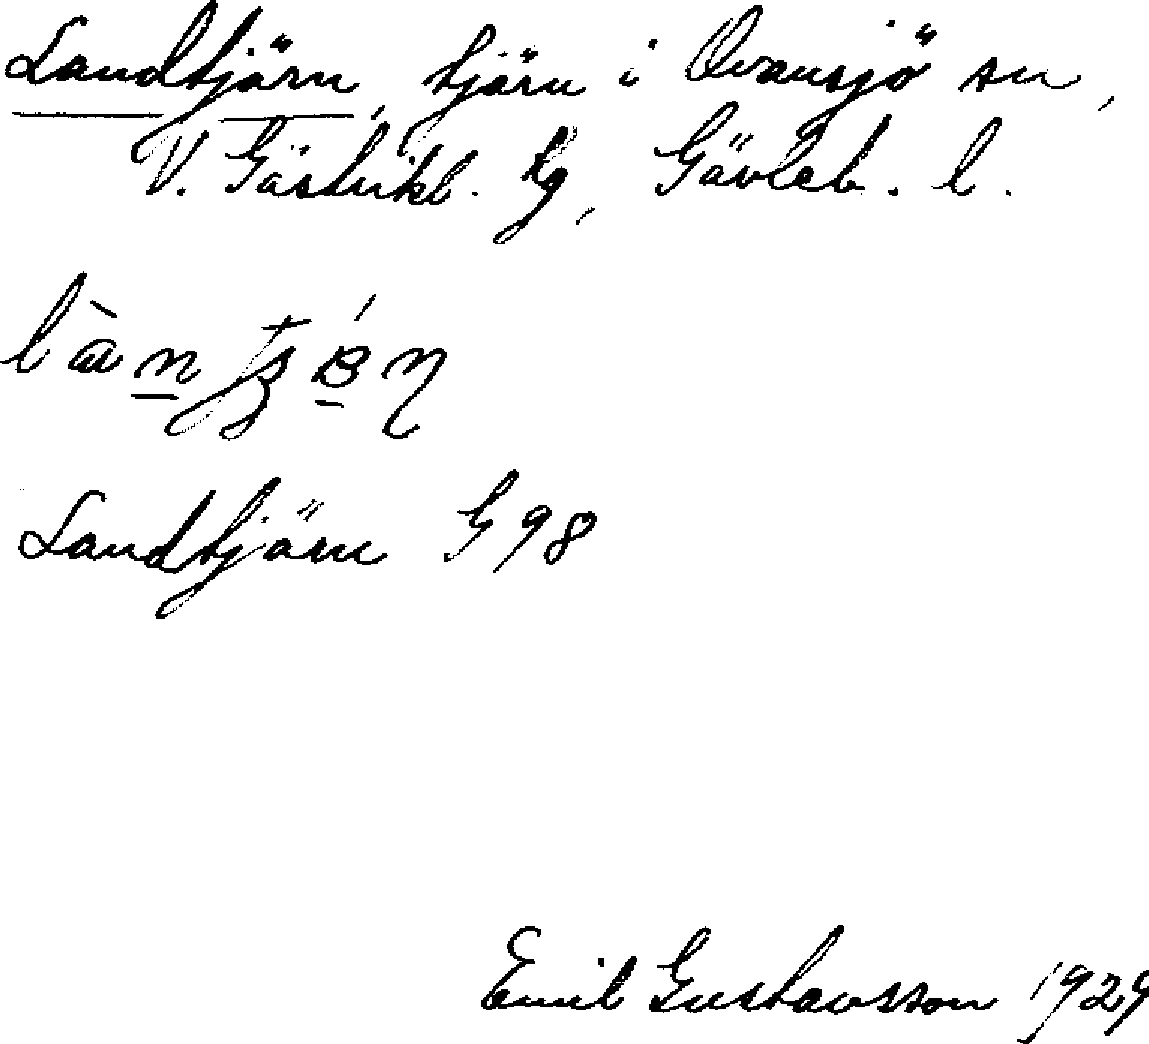 Landtjärn, tjärn i Ovansjö sn,
V. Gästrikl. tg, Gävleb. l.
Landtjärn G 98
Emil Gustavsson 1929